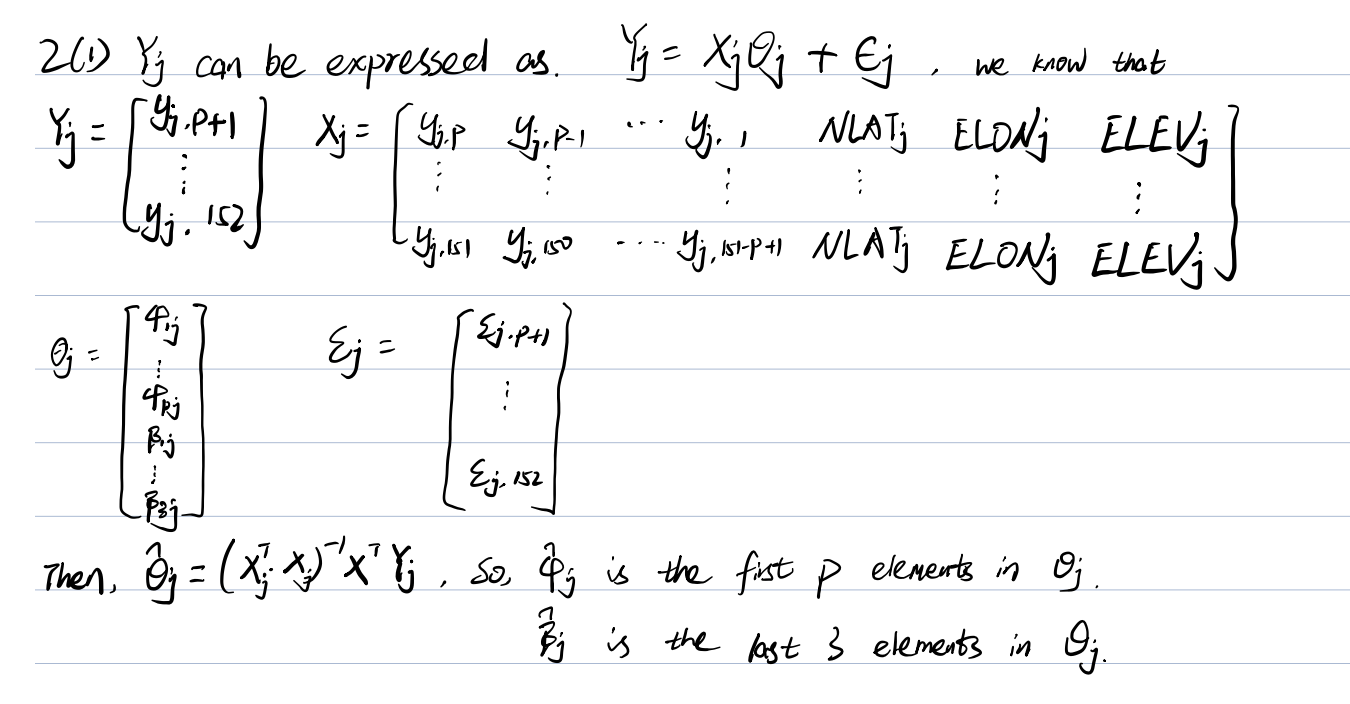 2(1) Yj can be expressed as. Yj = Xjθj + ϵj , we know that
Yj = [yj,p+1 ⋮ yj,152] Xj = [yj,p yj,p-1 ⋯ yj,1 NLATj ELONj ELEVj
⋮ ⋮ ⋮ ⋮ ⋮ ⋮
yj,151 yj,150 ⋯ yj,151-p+1 NLATj ELONj ELEVj]
θj = [φ1j ⋮ φpj β1j ⋮ β3j] εj = [εj,p+1 ⋮ εj,152]
Then, θ̂j = (Xj^T Xj)^-1 X^T Yj , so, φ̂j is the first p elements in θj.
β̂j is the last 3 elements in θj.